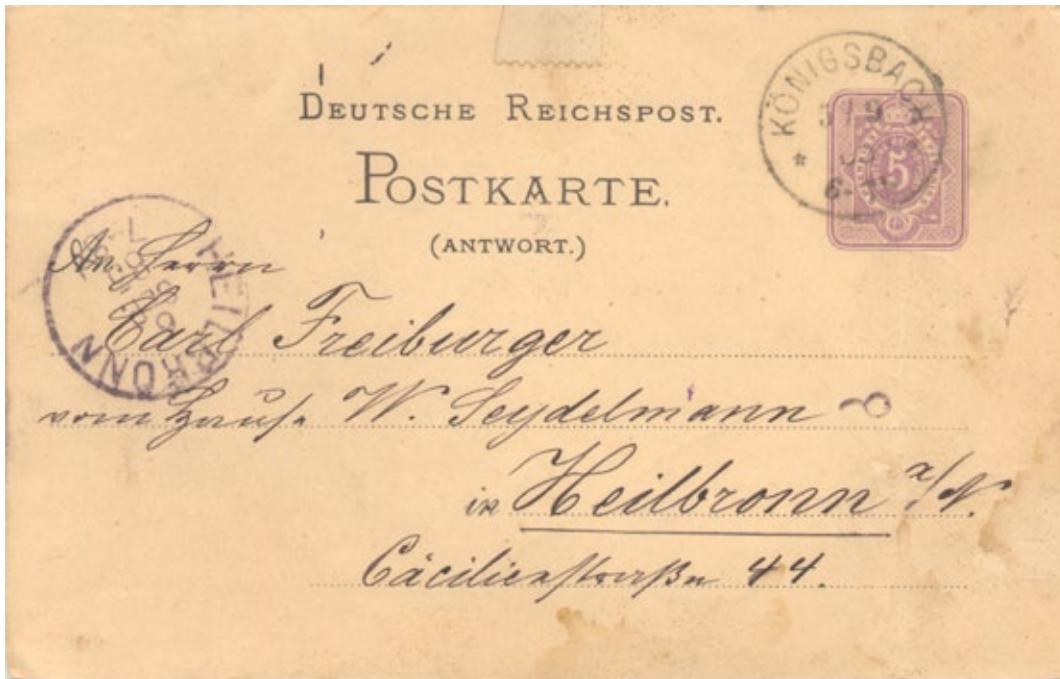 DEUTSCHE REICHSPOST.
POSTKARTE.
(ANTWORT.)
KÖNIGSBACH
5
HEILBRONN
An Herrn
Carl Freiburger
vom Hause W. Seydelmann
in Heilbronn a/N.
Cäcilienstraße 44.